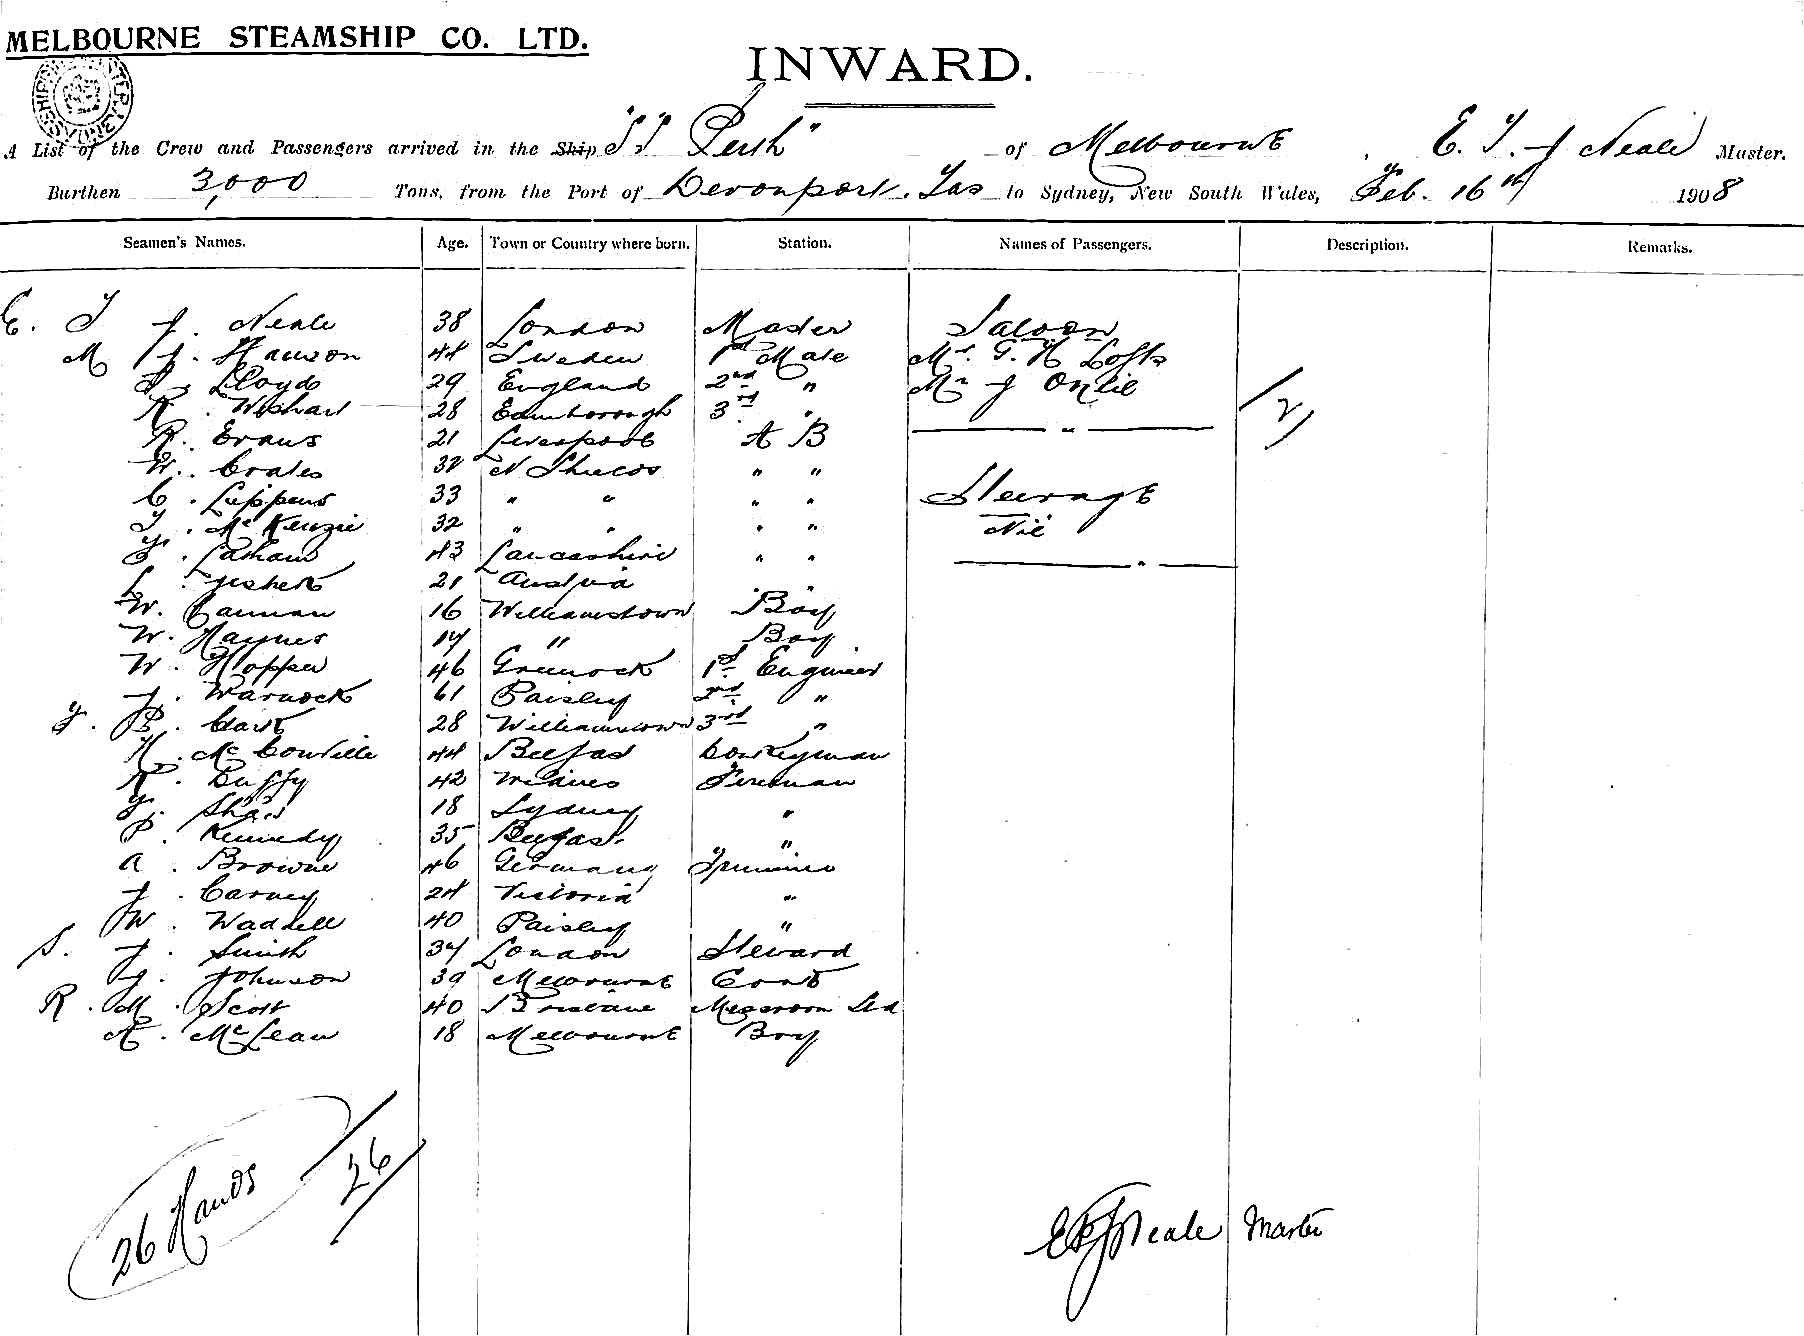 MELBOURNE STEAMSHIP CO. LTD.
INWARD.
A List of the Crew and Passengers arrived in the Ship "SS Perth" of Melbourne, E. T. J Neale Master.
Burthen 3,000 Tons, from the Port of Devonport. Tas to Sydney, New South Wales, Feb. 16th 1908
Seamen's Names. Age. Town or Country where born. Station. Names of Passengers. Description. Remarks.
E. T J. Neale 38 London Master Saloon
M J. Hanson 44 Sweden 1st Mate Mr. G. H Lofts
Lloyd 29 England 2nd " Mr J
R. Wishart 28 Edinborough 3rd "
R. Evans 21 Liverpool A B
W. Crates 32 N Shields " "
C. Lippens 33 " " " " Steerage
T. McKenzie 32 " " " " Nil
43 Lancashire " "
L. 21 Austria " "
W. Cannan 16 Williamstown Boy
W. Haynes 17 " Boy
W. Hopper 46 Greenock 1st Engineer
J. Warnock 61 Paisley 2nd "
F. B. Clark 28 Williamstown 3rd "
H. McConville 44 Belfast Donkeyman
R. Duffy 42 Fireman
Shaw 18 Sydney "
P. Kennedy 35 Belfast "
A. Browne 46 Germany Trimmer
J. Carney 24 Victoria "
W. Waddell 40 Paisley "
S. J. Smith 37 London Steward
J. Johnson 39 Melbourne Cook
R. M. Scott 40 Brisbane Messroom Std
A. McLean 18 Melbourne Boy
26 Hands
26
E T J Neale Master